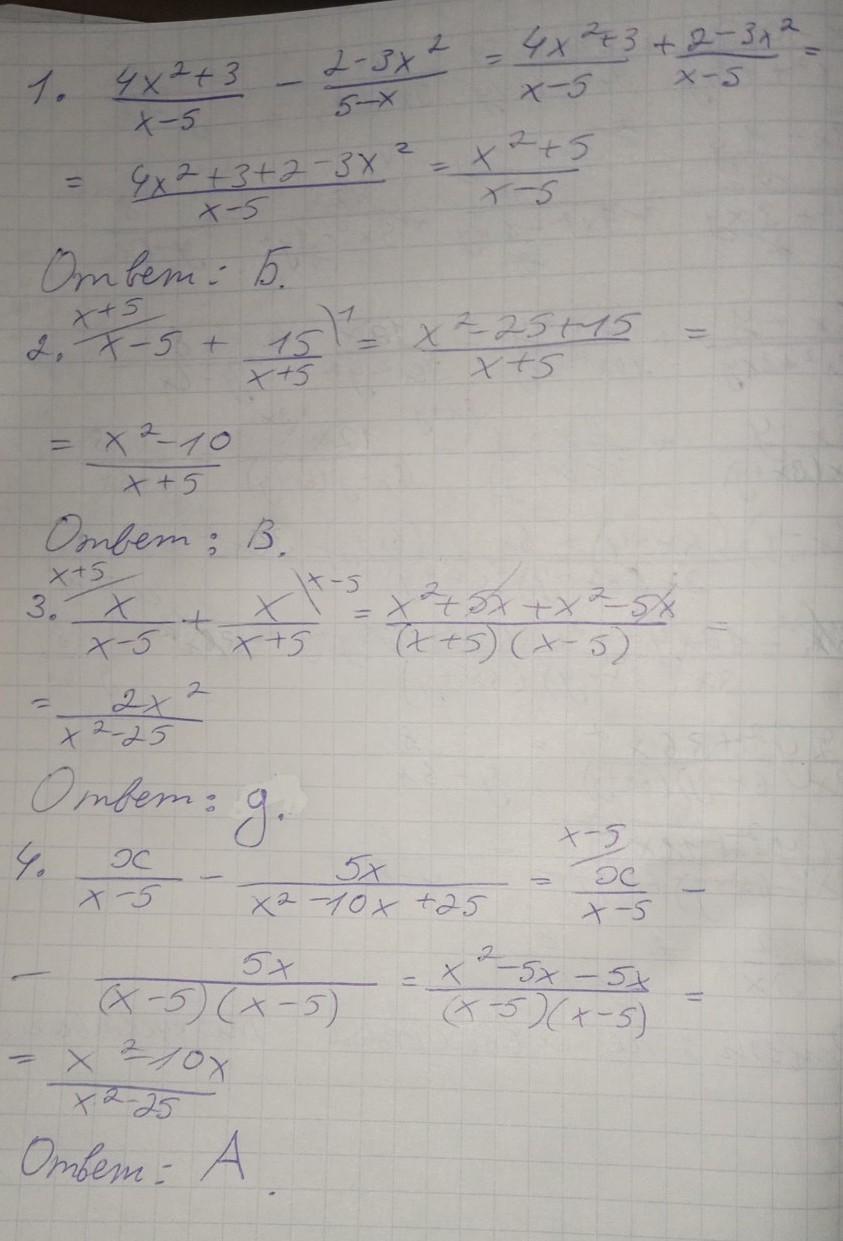 1. (4x²+3)/(x-5) - (2-3x²)/(5-x) = (4x²+3)/(x-5) + (2-3x²)/(x-5) =
= (4x²+3+2-3x²)/(x-5) = (x²+5)/(x-5)
Ответ: Б.
x+5/ \1
2. x-5 + 15/(x+5) = (x²-25+15)/(x+5) =
= (x²-10)/(x+5)
Ответ: В.
x+5/ \x-5
3. x/(x-5) + x/(x+5) = (x²+5x+x²-5x)/((x+5)(x-5)) =
= 2x²/(x²-25)
Ответ: g.
x-5/
4. x/(x-5) - 5x/(x²-10x+25) = x/(x-5) -
- 5x/((x-5)(x-5)) = (x²-5x-5x)/((x-5)(x-5)) =
= (x²-10x)/(x²-25)
Ответ: А.